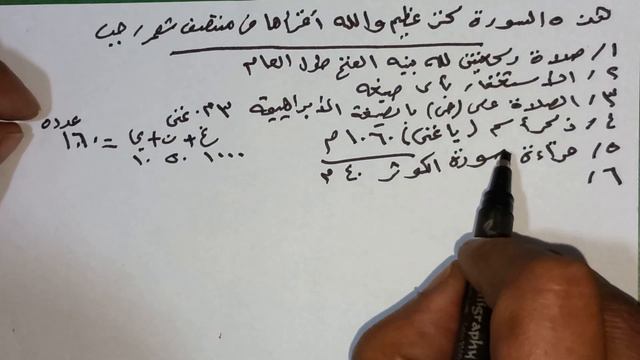 هذه السورة كنز عظيم والله أقرأها من منتصف شهر رجب
١/ صلاة ركعتين لله بنية الفتح طول العام
٢/ الاستغفار بأى صيغه
٣/ الصلاة على (ص) بالصيغة الابراهيمية
٤/ ذكر اسم (يا غنى) ١٠٦٠ م
٥/ قراءة سورة الكوثر ٤٠ م
٦/
٣٣ . غنى عدده
غ + ن + ي = ١٠٦٠
١٠٠٠ ٥٠ ١٠